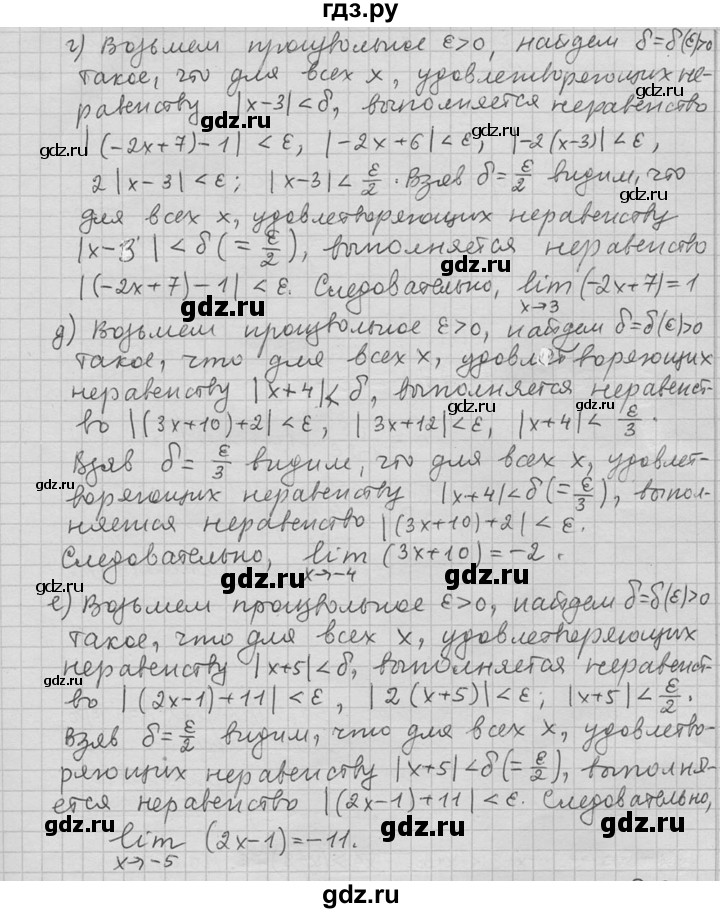 гдз.ру
г) Возьмем произвольное ε>0, найдем δ=δ(ε)>0
такое, что для всех x, удовлетворяющих не-
равенству |x-3|<δ, выполняется неравенство
|(-2x+7)-1|<ε, |-2x+6|<ε, |-2(x-3)|<ε,
2|x-3|<ε; |x-3|<ε/2. Взяв δ=ε/2 видим, что
для всех x, удовлетворяющих неравенству
|x-3|<δ(=ε/2), выполняется неравенство
|(-2x+7)-1|<ε. Следовательно, lim x→3 (-2x+7)=1
д) Возьмем произвольное ε>0, найдем δ=δ(ε)>0
такое, что для всех x, удовлетворяющих
неравенству |x+4|<δ, выполняется неравенст-
во |(3x+10)+2|<ε, |3x+12|<ε, |x+4|<ε/3.
Взяв δ=ε/3 видим, что для всех x, удовлет-
воряющих неравенству |x+4|<δ(=ε/3), выпол-
няется неравенство |(3x+10)+2|<ε.
Следовательно, lim x→-4 (3x+10)=-2.
е) Возьмем произвольное ε>0, найдем δ=δ(ε)>0
такое, что для всех x, удовлетворяющих
неравенству |x+5|<δ, выполняется неравенст-
во |(2x-1)+11|<ε, |2(x+5)|<ε; |x+5|<ε/2.
Взяв δ=ε/2 видим, что для всех x, удовлетво-
ряющих неравенству |x+5|<δ(=ε/2), выполня-
ется неравенство |(2x-1)+11|<ε. Следовательно,
lim x→-5 (2x-1)=-11.
gdz.ru